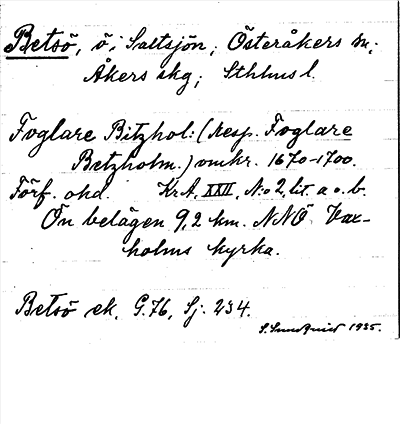 Betsö, ö i Saltsjön; Österåkers sn;
Åkers skg; Sthlms l.
Foglare Bitzhol: (resp. Foglare
Betzholm.) omkr. 1670-1700.
Förf. okd. KrA, XXII, No 2, lit. a o. b.
Ön belägen 9,2 km. NNÖ Vax-
holms kyrka.
Betsö ek, G.76, Sj. 234.
S. Sundquist 1935.